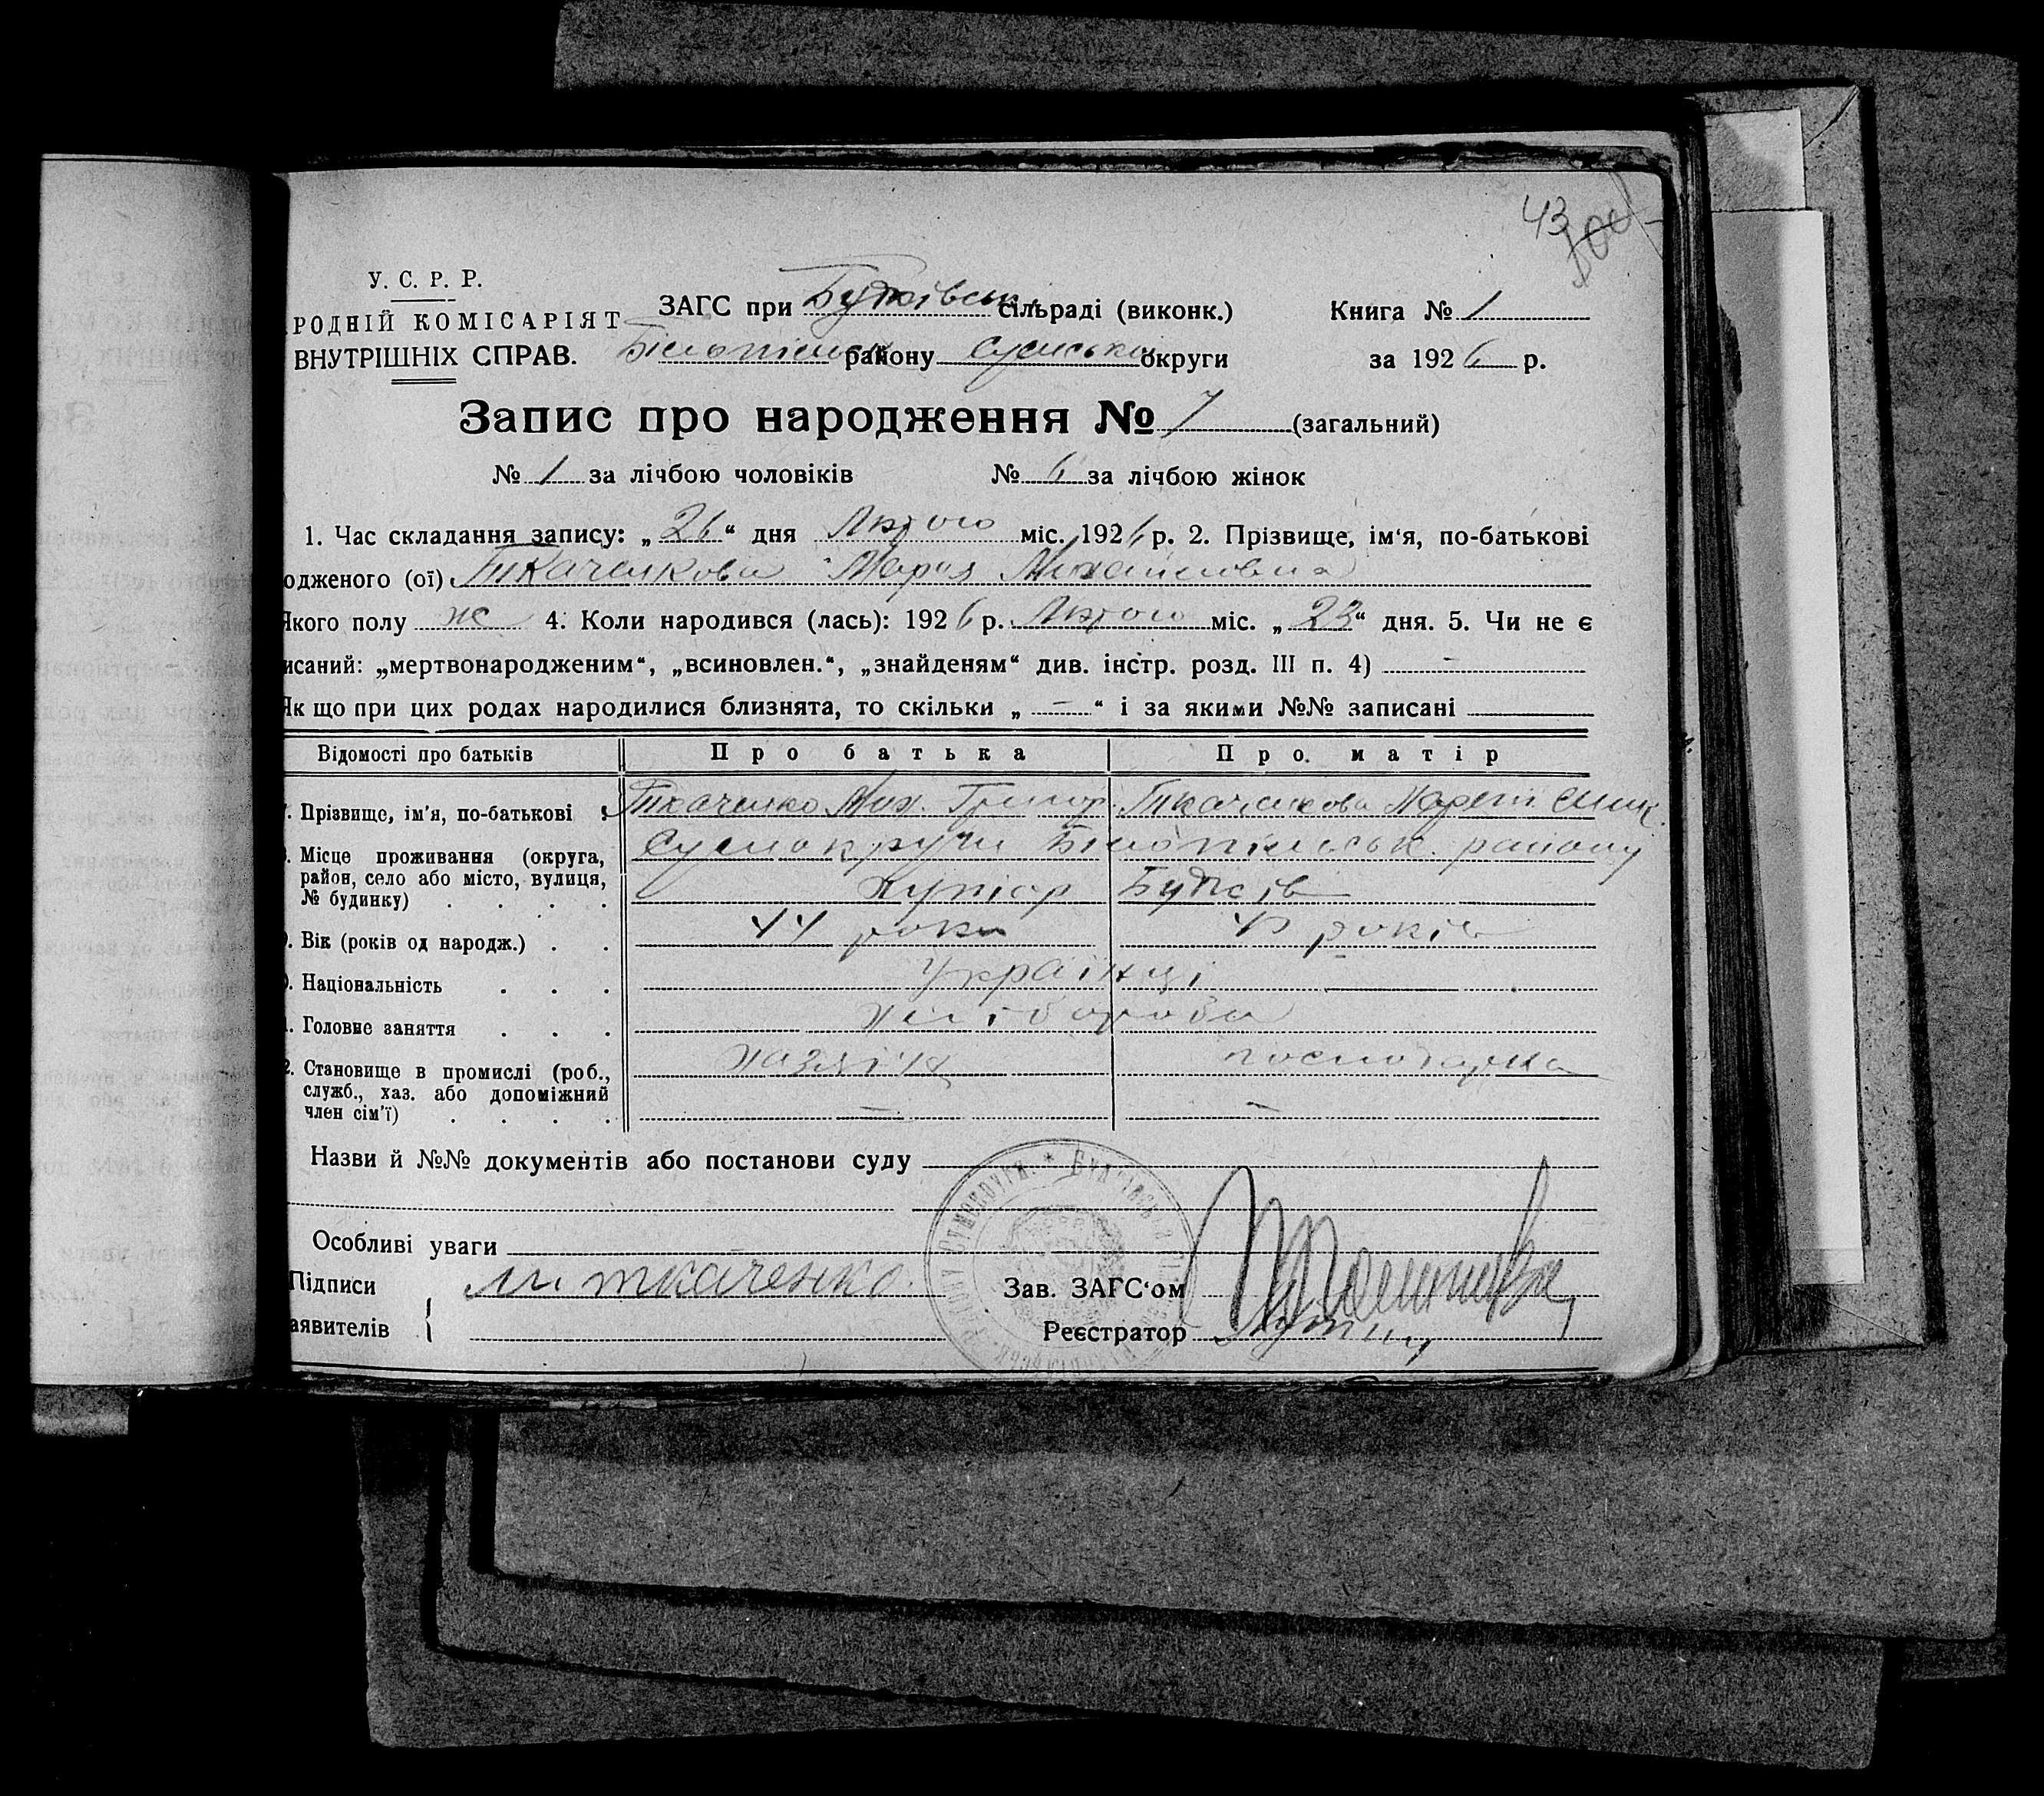 43
У. С. Р. Р.
РОДНІЙ КОМІСАРІЯТ
ВНУТРІШНІХ СПРАВ.
ЗАГС при Будківськ. сільраді (виконк.)
Книга № 1
Білопільск району Сумської округи
за 1926 р.
Запис про народження № 7 (загальний)
№ 1 за лічбою чоловіків № 6 за лічбою жінок
1. Час складання запису: „26“ дня Лютого міс. 1926 р. 2. Прізвище, ім‘я, по-батькові
одженого (ої) Ткаченкова Мария Михайловна
Якого полу ж 4. Коли народився (лась): 1926 р. Лютого міс. „23“ дня. 5. Чи не є
исаний: „мертвонародженим“, „всиновлен.“, „знайденям“ див. інстр. розд. III п. 4) –
Як що при цих родах народилися близнята, то скільки „–“ і за якими №№ записані
Відомості про батьків Про батька Про. матір
Прізвище, ім'я, по-батькові Ткаченко Мих. Григор. Ткаченкова
Місце проживання (округа, Сумокруги Білопільськ. району
район, село або місто, вулиця,
№ будинку) . . . . Хутіор Будків
Вік (років од народж.) . . 44 роки років
Національність . . . Українці
Головне заняття . . . Хлібороби
2. Становище в промислі (роб., хазяїн господарка
служб., хаз. або допоміжний
член сім'ї) . . . . – –
Назви й №№ документів або постанови суду
Особливі уваги
Підписи м. ткаченко.
аявителів
Зав. ЗАГС‘ом
Реєстратор